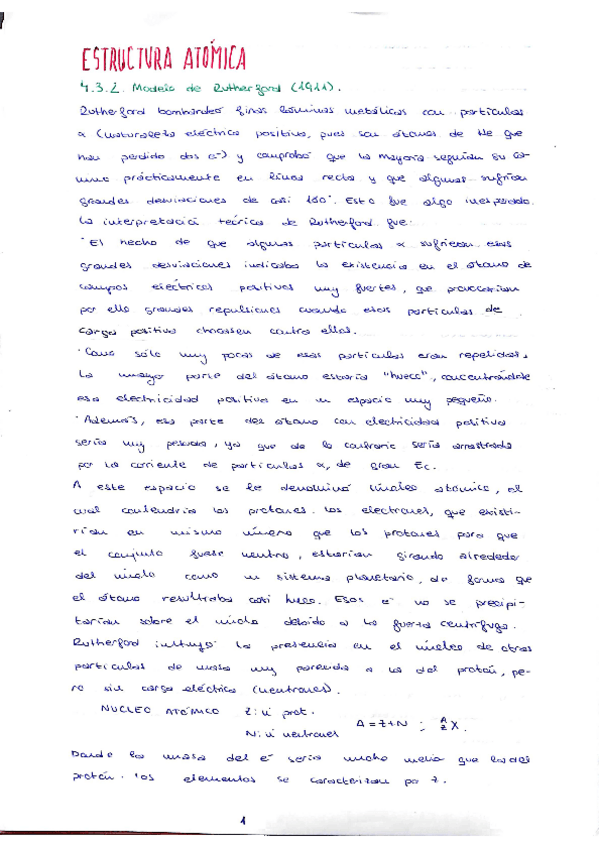 ESTRUCTURA ATÓMICA
4.3.2. Modelo de Rutherford (1911).
Rutherford bombardeó finas láminas metálicas con partículas
α (naturaleza eléctrica positiva, pues son átomos de He que
han perdido dos e⁻) y comprobó que la mayoría seguían su ca-
mino prácticamente en línea recta y que algunas sufrían
grandes desviaciones de casi 180°. Esto fue algo inesperado.
La interpretación teórica de Rutherford fue:
· El hecho de que algunas partículas α sufrieran esas
grandes desviaciones indicaba la existencia en el átomo de
campos eléctricos positivos muy fuertes, que provocarían
por ello grandes repulsiones cuando esas partículas de
carga positiva chocasen contra ellos.
· Como sólo muy pocas de esas partículas eran repelidas,
la mayor parte del átomo estaría "hueco", concentrándose
esa electricidad positiva en un espacio muy pequeño.
· Además, esa parte del átomo con electricidad positiva
sería muy pesada, ya que de lo contrario sería arrastrada
por la corriente de partículas α, de gran Ec.
A este espacio se le denominó núcleo atómico, el
cual contendría los protones. Los electrones, que existi-
rían en mismo número que los protones para que
el conjunto fuese neutro, estarían girando alrededor
del núcleo como un sistema planetario, de forma que
el átomo resultaba casi hueco. Esos e⁻ no se precipi-
tarían sobre el núcleo debido a la fuerza centrífuga.
Rutherford intuyó la presencia en el núcleo de otras
partículas de masa muy parecida a la del protón, pe-
ro sin carga eléctrica (neutrones).
NUCLEO ATÓMICO Z: nº prot.
A = Z+N : ᴬ_Z X.
N: nº neutrones
Donde la masa del e⁻ sería mucho menor que la del
protón. Los elementos se caracterizan por Z.
1